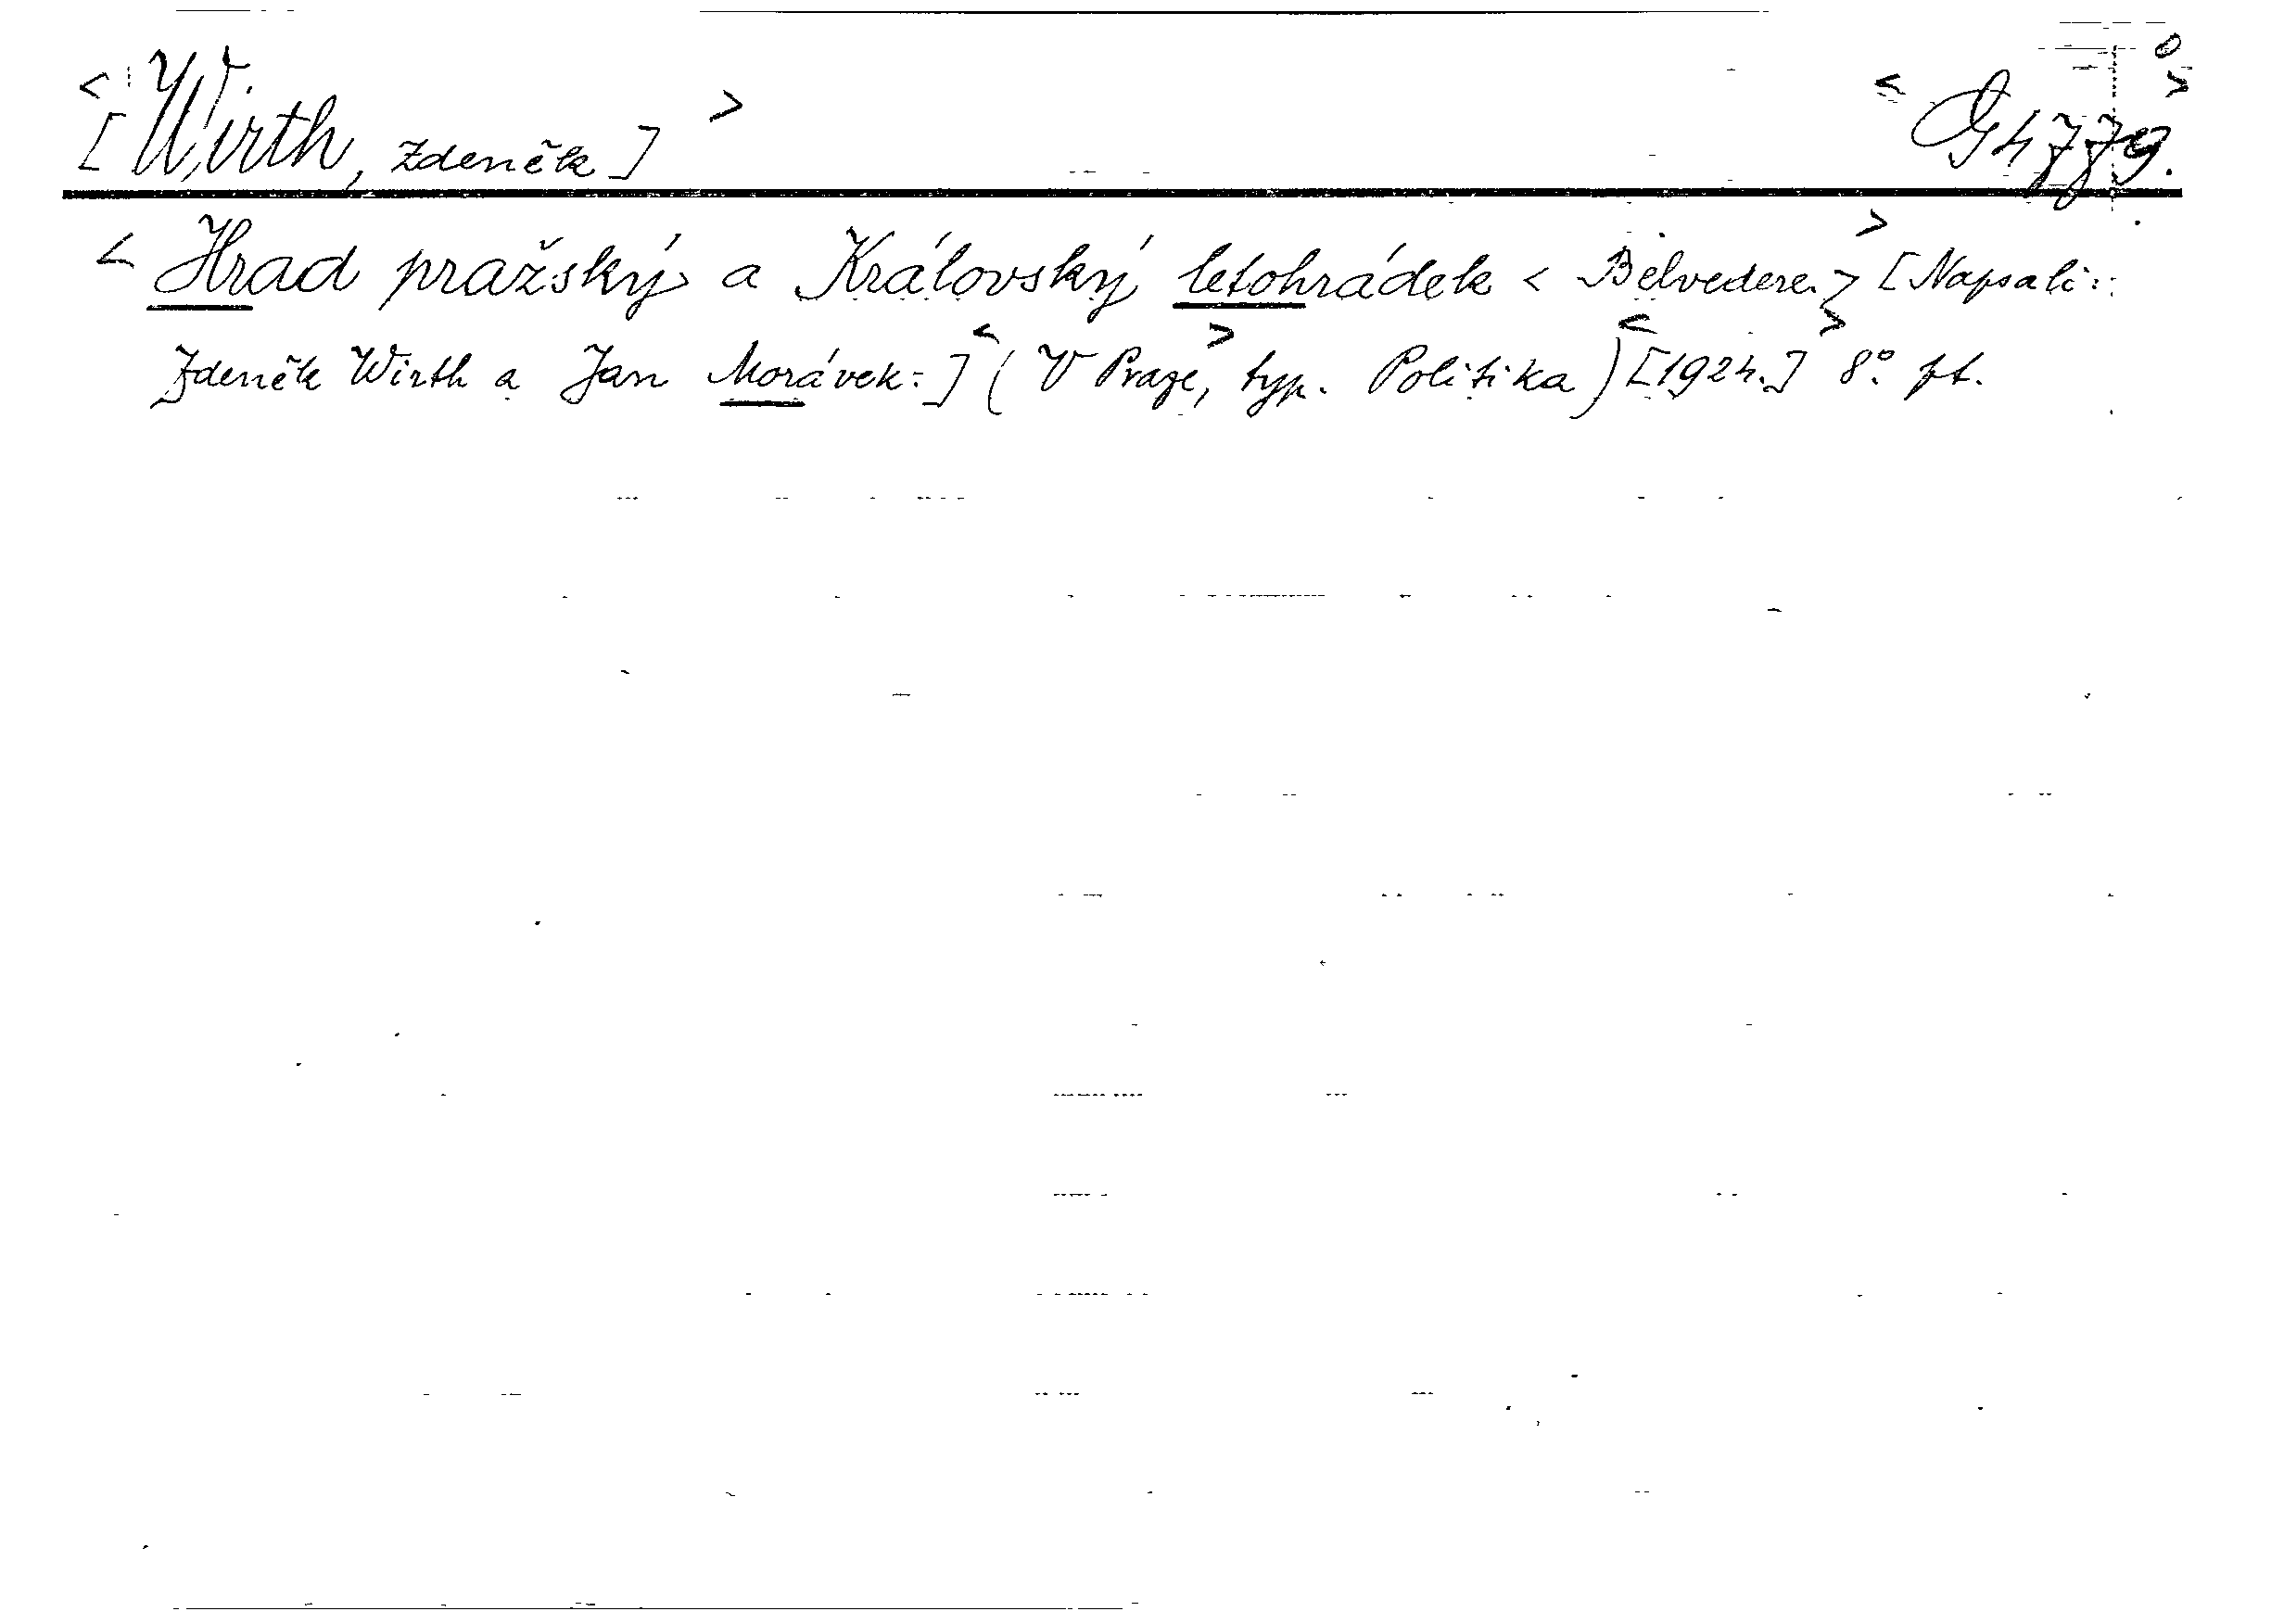 <[Wirth, Zdeněk]> <G 4779.>
<Hrad pražský a Královský letohrádek <Belvedere.> [Napsali:
Zdeněk Wirth a Jan Morávek.] <(V Praze,> typ. Politika) <[1924.]> 8°. pt.